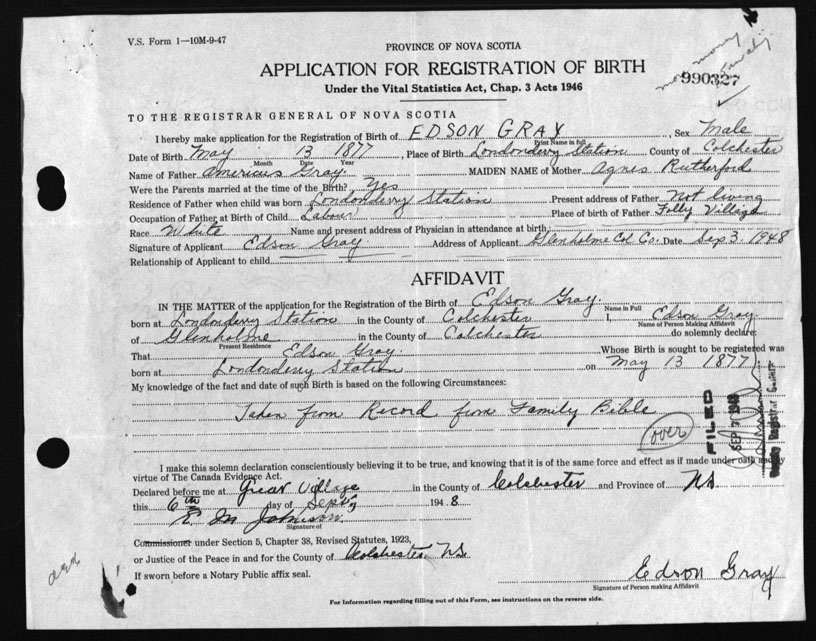 V.S. Form 1—10M-9-47
PROVINCE OF NOVA SCOTIA
APPLICATION FOR REGISTRATION OF BIRTH
Under the Vital Statistics Act, Chap. 3 Acts 1946
no money
990327
TO THE REGISTRAR GENERAL OF NOVA SCOTIA
I hereby make application for the Registration of Birth of EDSON GRAY, Sex Male
Print Name in full
Date of Birth May 13 1877, Place of Birth Londonderry Station County of Colchester
Month Date Year
Name of Father Americus Gray MAIDEN NAME of Mother Agnes Rutherford
Were the Parents married at the time of the Birth? Yes
Residence of Father when child was born Londonderry Station Present address of Father Not living
Occupation of Father at Birth of Child Labour Place of birth of Father Folly Village
Race White Name and present address of Physician in attendance at birth
Signature of Applicant Edson Gray Address of Applicant Glenholme Col Co. Date Sep 3 1948
Relationship of Applicant to child
AFFIDAVIT
IN THE MATTER of the application for the Registration of the Birth of Edson Gray
Name in Full
born at Londonderry Station in the County of Colchester I, Edson Gray
Name of Person Making Affidavit
of Glenholme in the County of Colchester do solemnly declare:
Present Residence
That Edson Gray Whose Birth is sought to be registered was
born at Londonderry Station on May 13 1877
My knowledge of the fact and date of such Birth is based on the following Circumstances:
Taken from Record from Family Bible
over
FILED
SEP 7 1948
Deputy Registrar General
I make this solemn declaration conscientiously believing it to be true, and knowing that it is of the same force and effect as if made under oath and by
virtue of The Canada Evidence Act.
Declared before me at Great Village in the County of Colchester and Province of N.S.
this 6th day of Sept, 1948
E M Johnson
Signature of
Commissioner under Section 5, Chapter 38, Revised Statutes, 1923,
or Justice of the Peace in and for the County of Colchester N.S.
If sworn before a Notary Public affix seal.
Edson Gray
Signature of Person making Affidavit
For Information regarding filling out of this Form, see instructions on the reverse side.